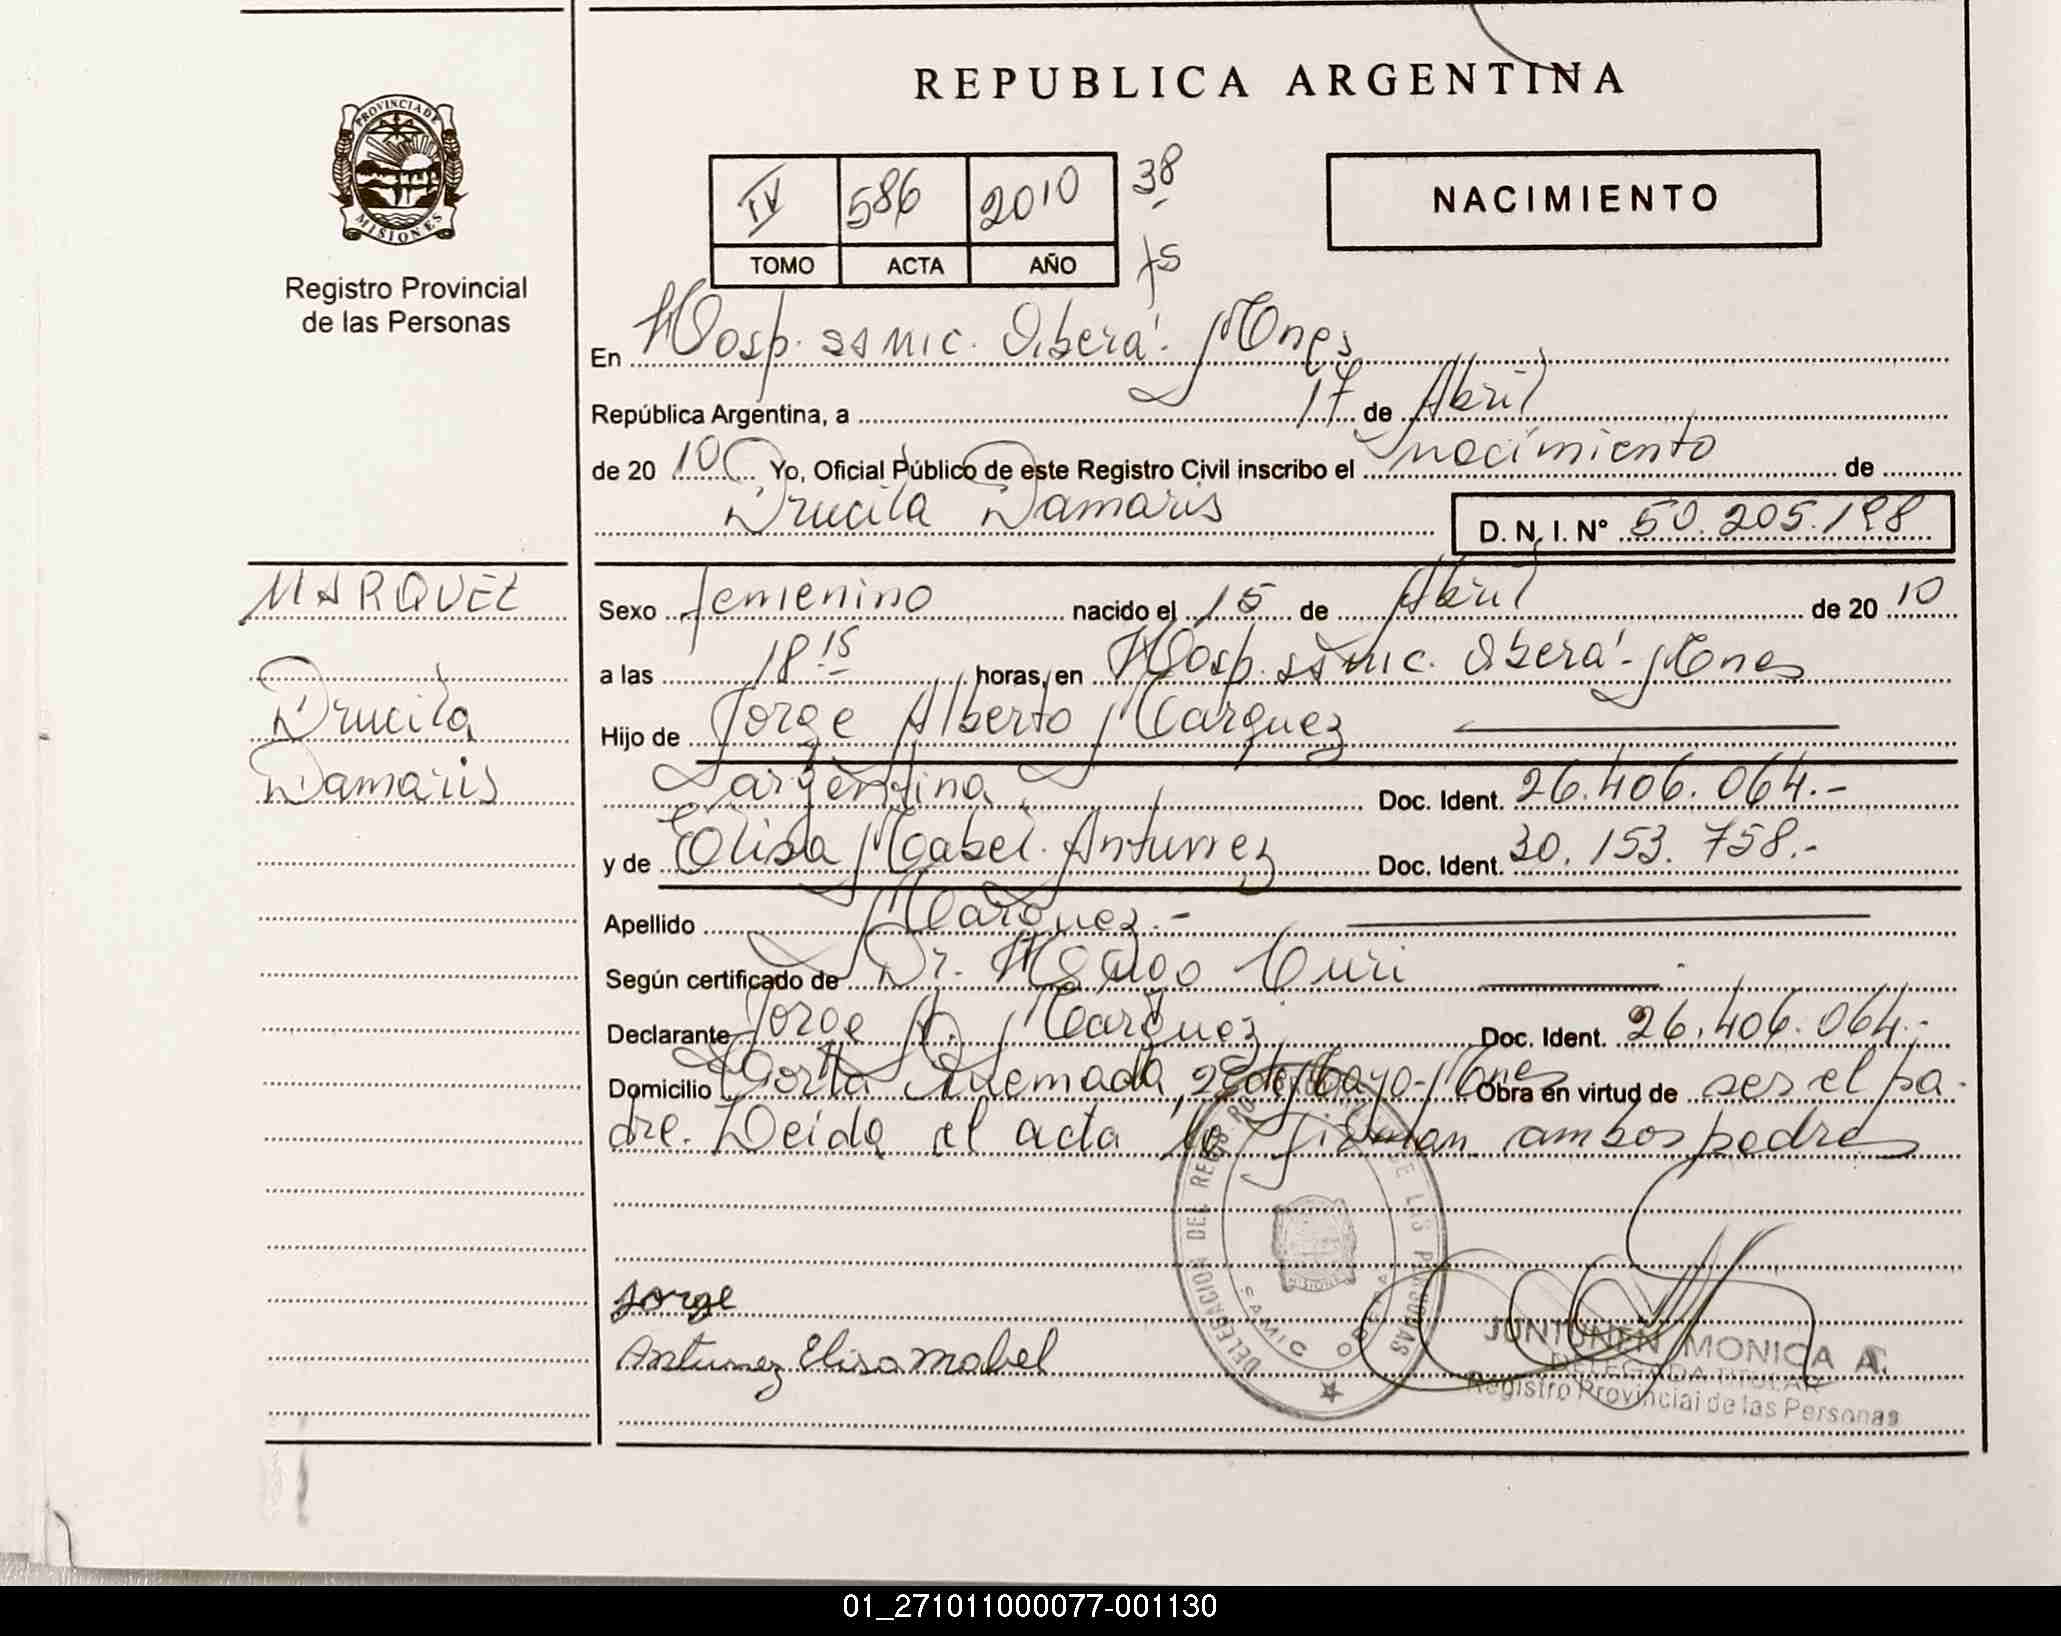 REPUBLICA ARGENTINA
PROVINCIA DE
MISIONES
Registro Provincial
de las Personas
IV 586 2010 38
TOMO ACTA AÑO
NACIMIENTO
En Hosp. ss mic. Oberá. Mnes
República Argentina, a 17 de Abril
de 20 10 Yo, Oficial Público de este Registro Civil inscribo el nacimiento de
Drucila Damaris D. N. I. N° 50.205.198
MARQUEZ
Drucila
Damaris
Sexo femenino nacido el 15 de Abril de 20 10
a las 18 15 horas, en Hosp. ss mic. Oberá - Mnes
Hijo de Jorge Alberto Marquez
argentina Doc. Ident. 26.406.064.-
y de Elisa Mabel Antunez Doc. Ident. 30.153.758.-
Apellido Marquez.-
Según certificado de Dr. Hugo
Declarante Jorge A. Marquez Doc. Ident. 26.406.064.-
Domicilio Quemada, 2 de Mayo - Mnes Obra en virtud de ser el pa-
dre. Leida el acta la firman ambos padres
Jorge
Antunez Elisa Mabel
DELEGACION DEL REG. DE LAS PERSONAS
SAMIC OBERA
MISIONES
JUNTUNEN MONICA A.
DELEGADA TITULAR
Registro Provincial de las Personas
01_271011000077-001130